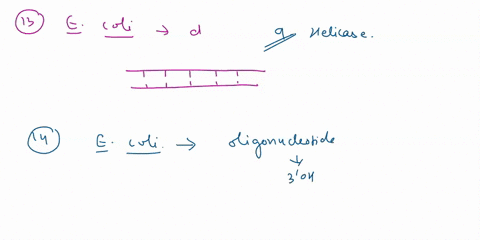 13 E. coli → d 9 Helicase.
14 E. coli. → oligonucleotide
↓
3'OH